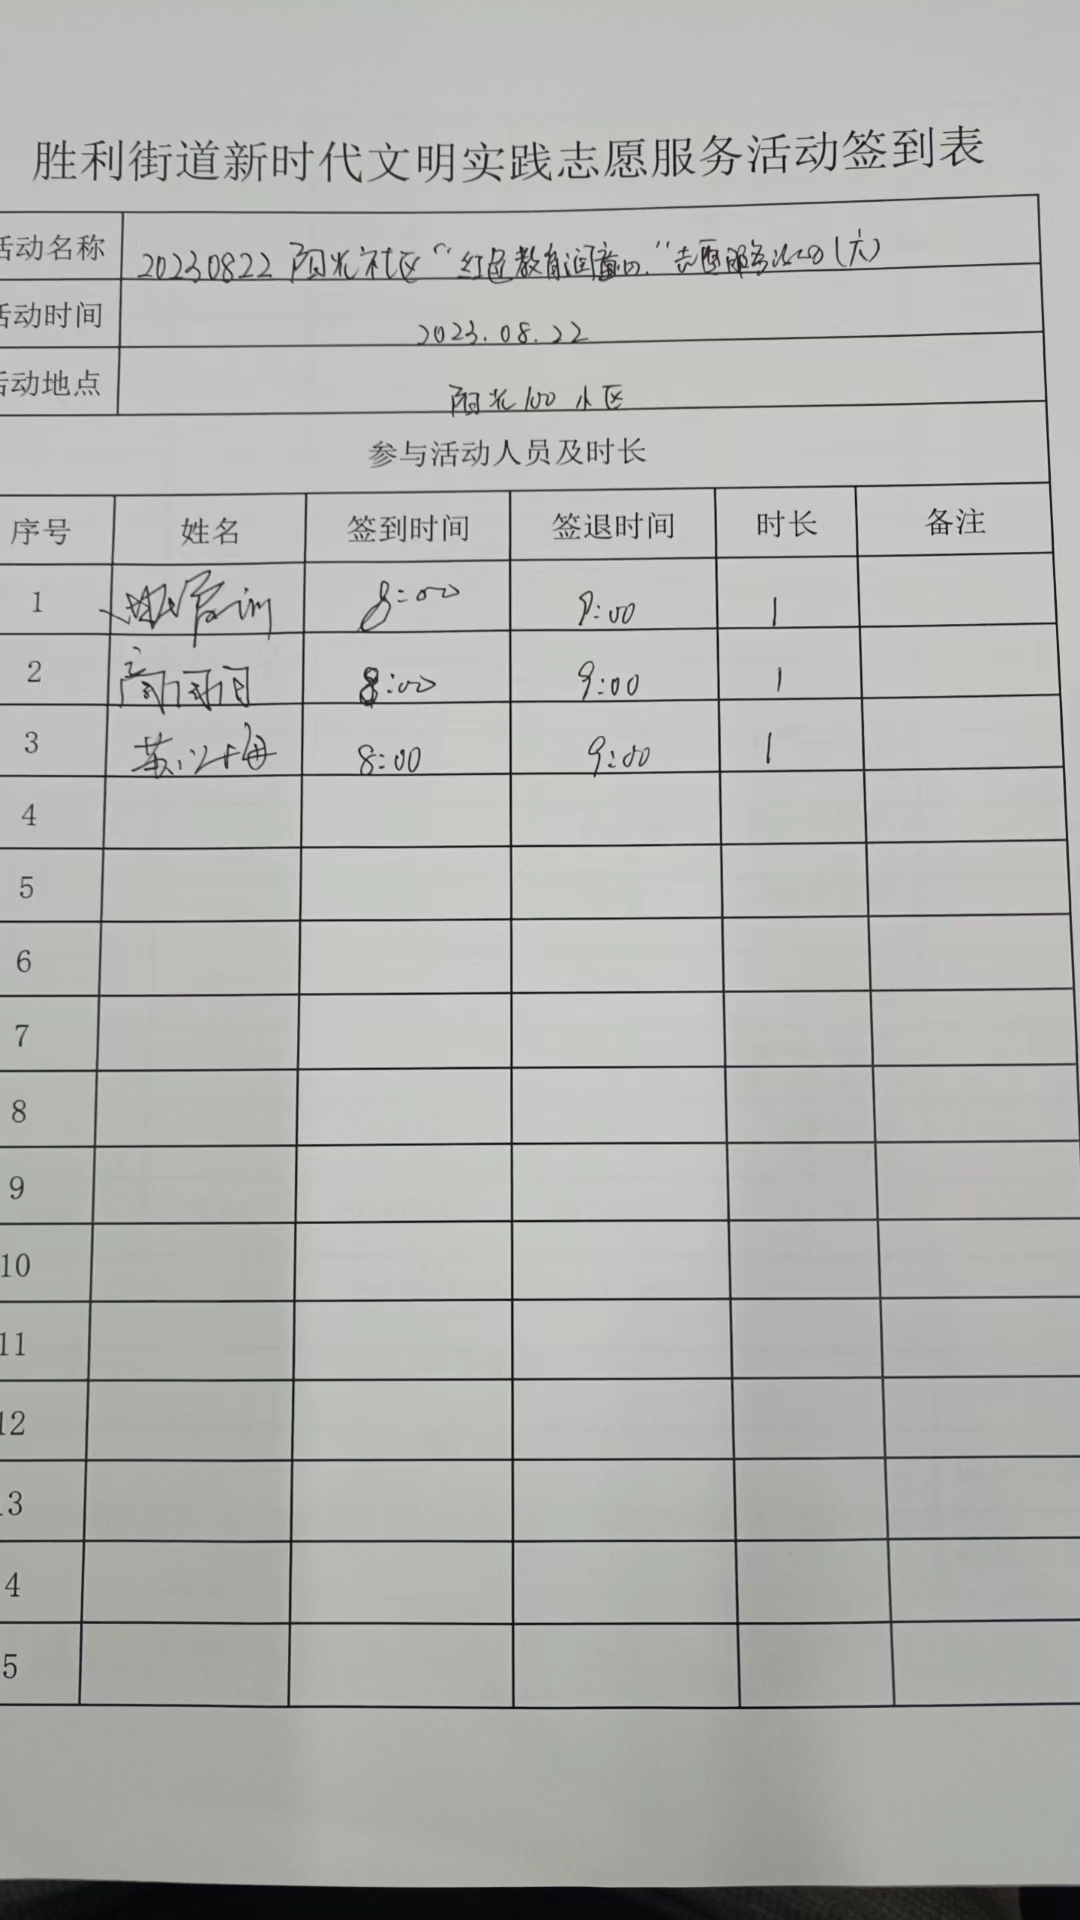 胜利街道新时代文明实践志愿服务活动签到表
活动名称 20230822 阳光社区“红色教育润童心”志愿服务活动(六)
活动时间 2023.08.22
活动地点 阳光100小区
参与活动人员及时长
序号 姓名 签到时间 签退时间 时长 备注
1 8:00 9:00 1
2 高闻闻 8:00 9:00 1
3 8:00 9:00 1
4
5
6
7
8
9
10
11
12
13
4
5